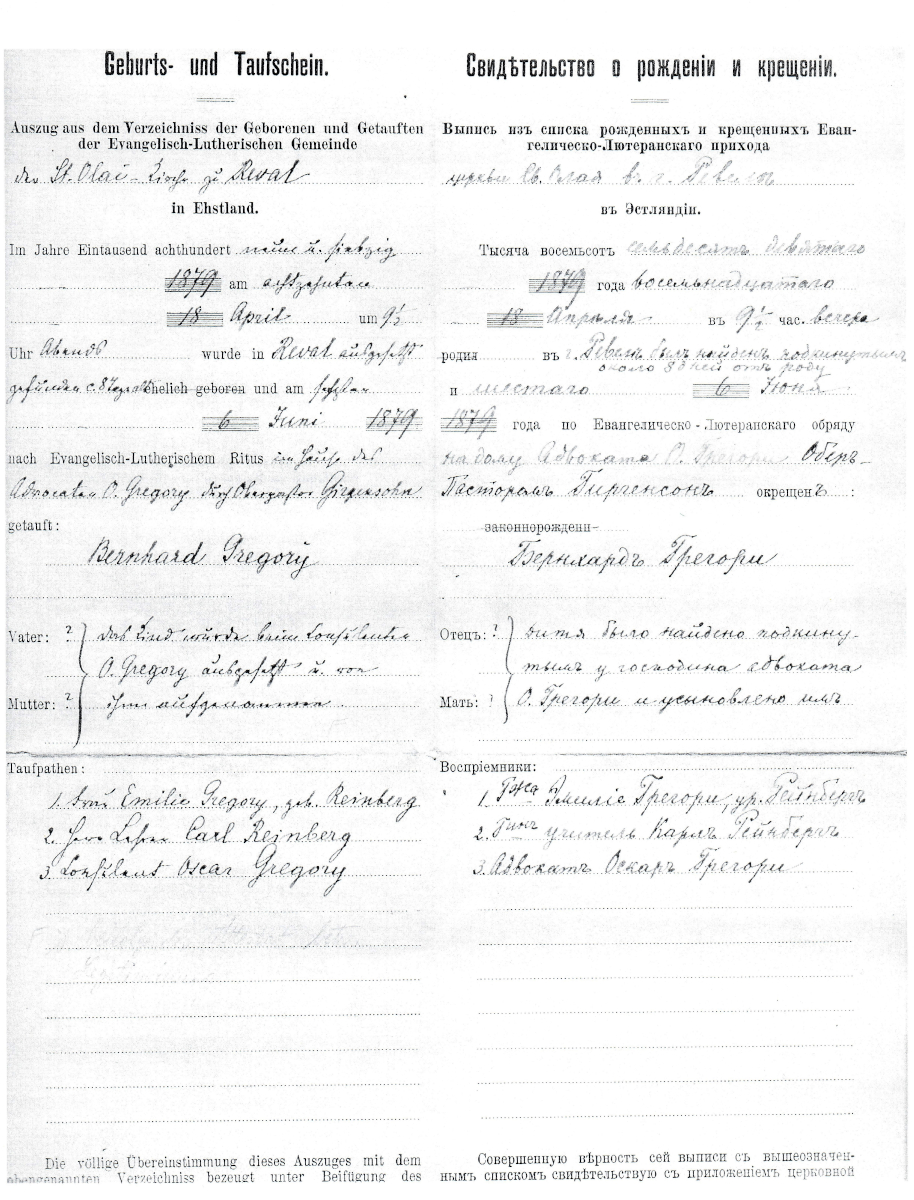 Geburts- und Taufschein.
Auszug aus dem Verzeichniss der Geborenen und Getauften
der Evangelisch-Lutherischen Gemeinde
der St. Olai-Kirche zu Reval
in Ehstland.
Im Jahre Eintausend achthundert neun u. siebzig
1879 am achtzehnten
18 April um 9½
Uhr Abends wurde in Reval ausgesetzt
gefunden c. 8 Tage alt ehelich geboren und am sechsten
6 Juni 1879
nach Evangelisch-Lutherischem Ritus im Hause des
Advocaten O. Gregory durch Oberpastor Girgensohn
getauft:
Bernhard Gregory
Vater: ? das Kind wurde beim Consulenten
O. Gregory ausgesetzt u. von
Mutter: ? ihm aufgenommen
Taufpathen:
1. Frau Emilie Gregory, geb. Reinberg
2. Herr Lehrer Carl Reinberg
3. Consulent Oscar Gregory
Die völlige Übereinstimmung dieses Auszuges mit dem
obengenannten Verzeichniss bezeugt unter Beifügung des
Свидѣтельство о рожденіи и крещеніи.
Выпись изъ списка рожденныхъ и крещенныхъ Еван-
гелическо-Лютеранскаго прихода
церкви Св. Олая в. г. Ревелѣ
въ Эстляндіи.
Тысяча восемьсотъ семьдесятъ девятаго
1879 года восемьнадцатаго
18 Апрѣля въ 9½ час. вечера
родил въ г. Ревелѣ былъ найденъ подкинутымъ
около 8 дней отъ роду
и шестаго 6 Юня
1879 года по Евангелическо-Лютеранскаго обряду
на дому Адвоката О. Грегори Оберъ-
Пасторомъ Гиргенсонъ окрещенъ:
законнорожденн-
Бернхардъ Грегори
Отецъ: ? дитя было найдено подкину-
тымъ у господина адвоката
Мать: ? О. Грегори и усыновлено имъ
Воспріемники:
1. Гжа Эмиліе Грегори, ур. Рейнбергъ
2. учитель Карлъ Рейнбергъ
3. Адвокатъ Оскаръ Грегори
Совершенную вѣрность сей выписи съ вышеозначен-
нымъ спискомъ свидѣтельствую съ приложеніемъ церковной